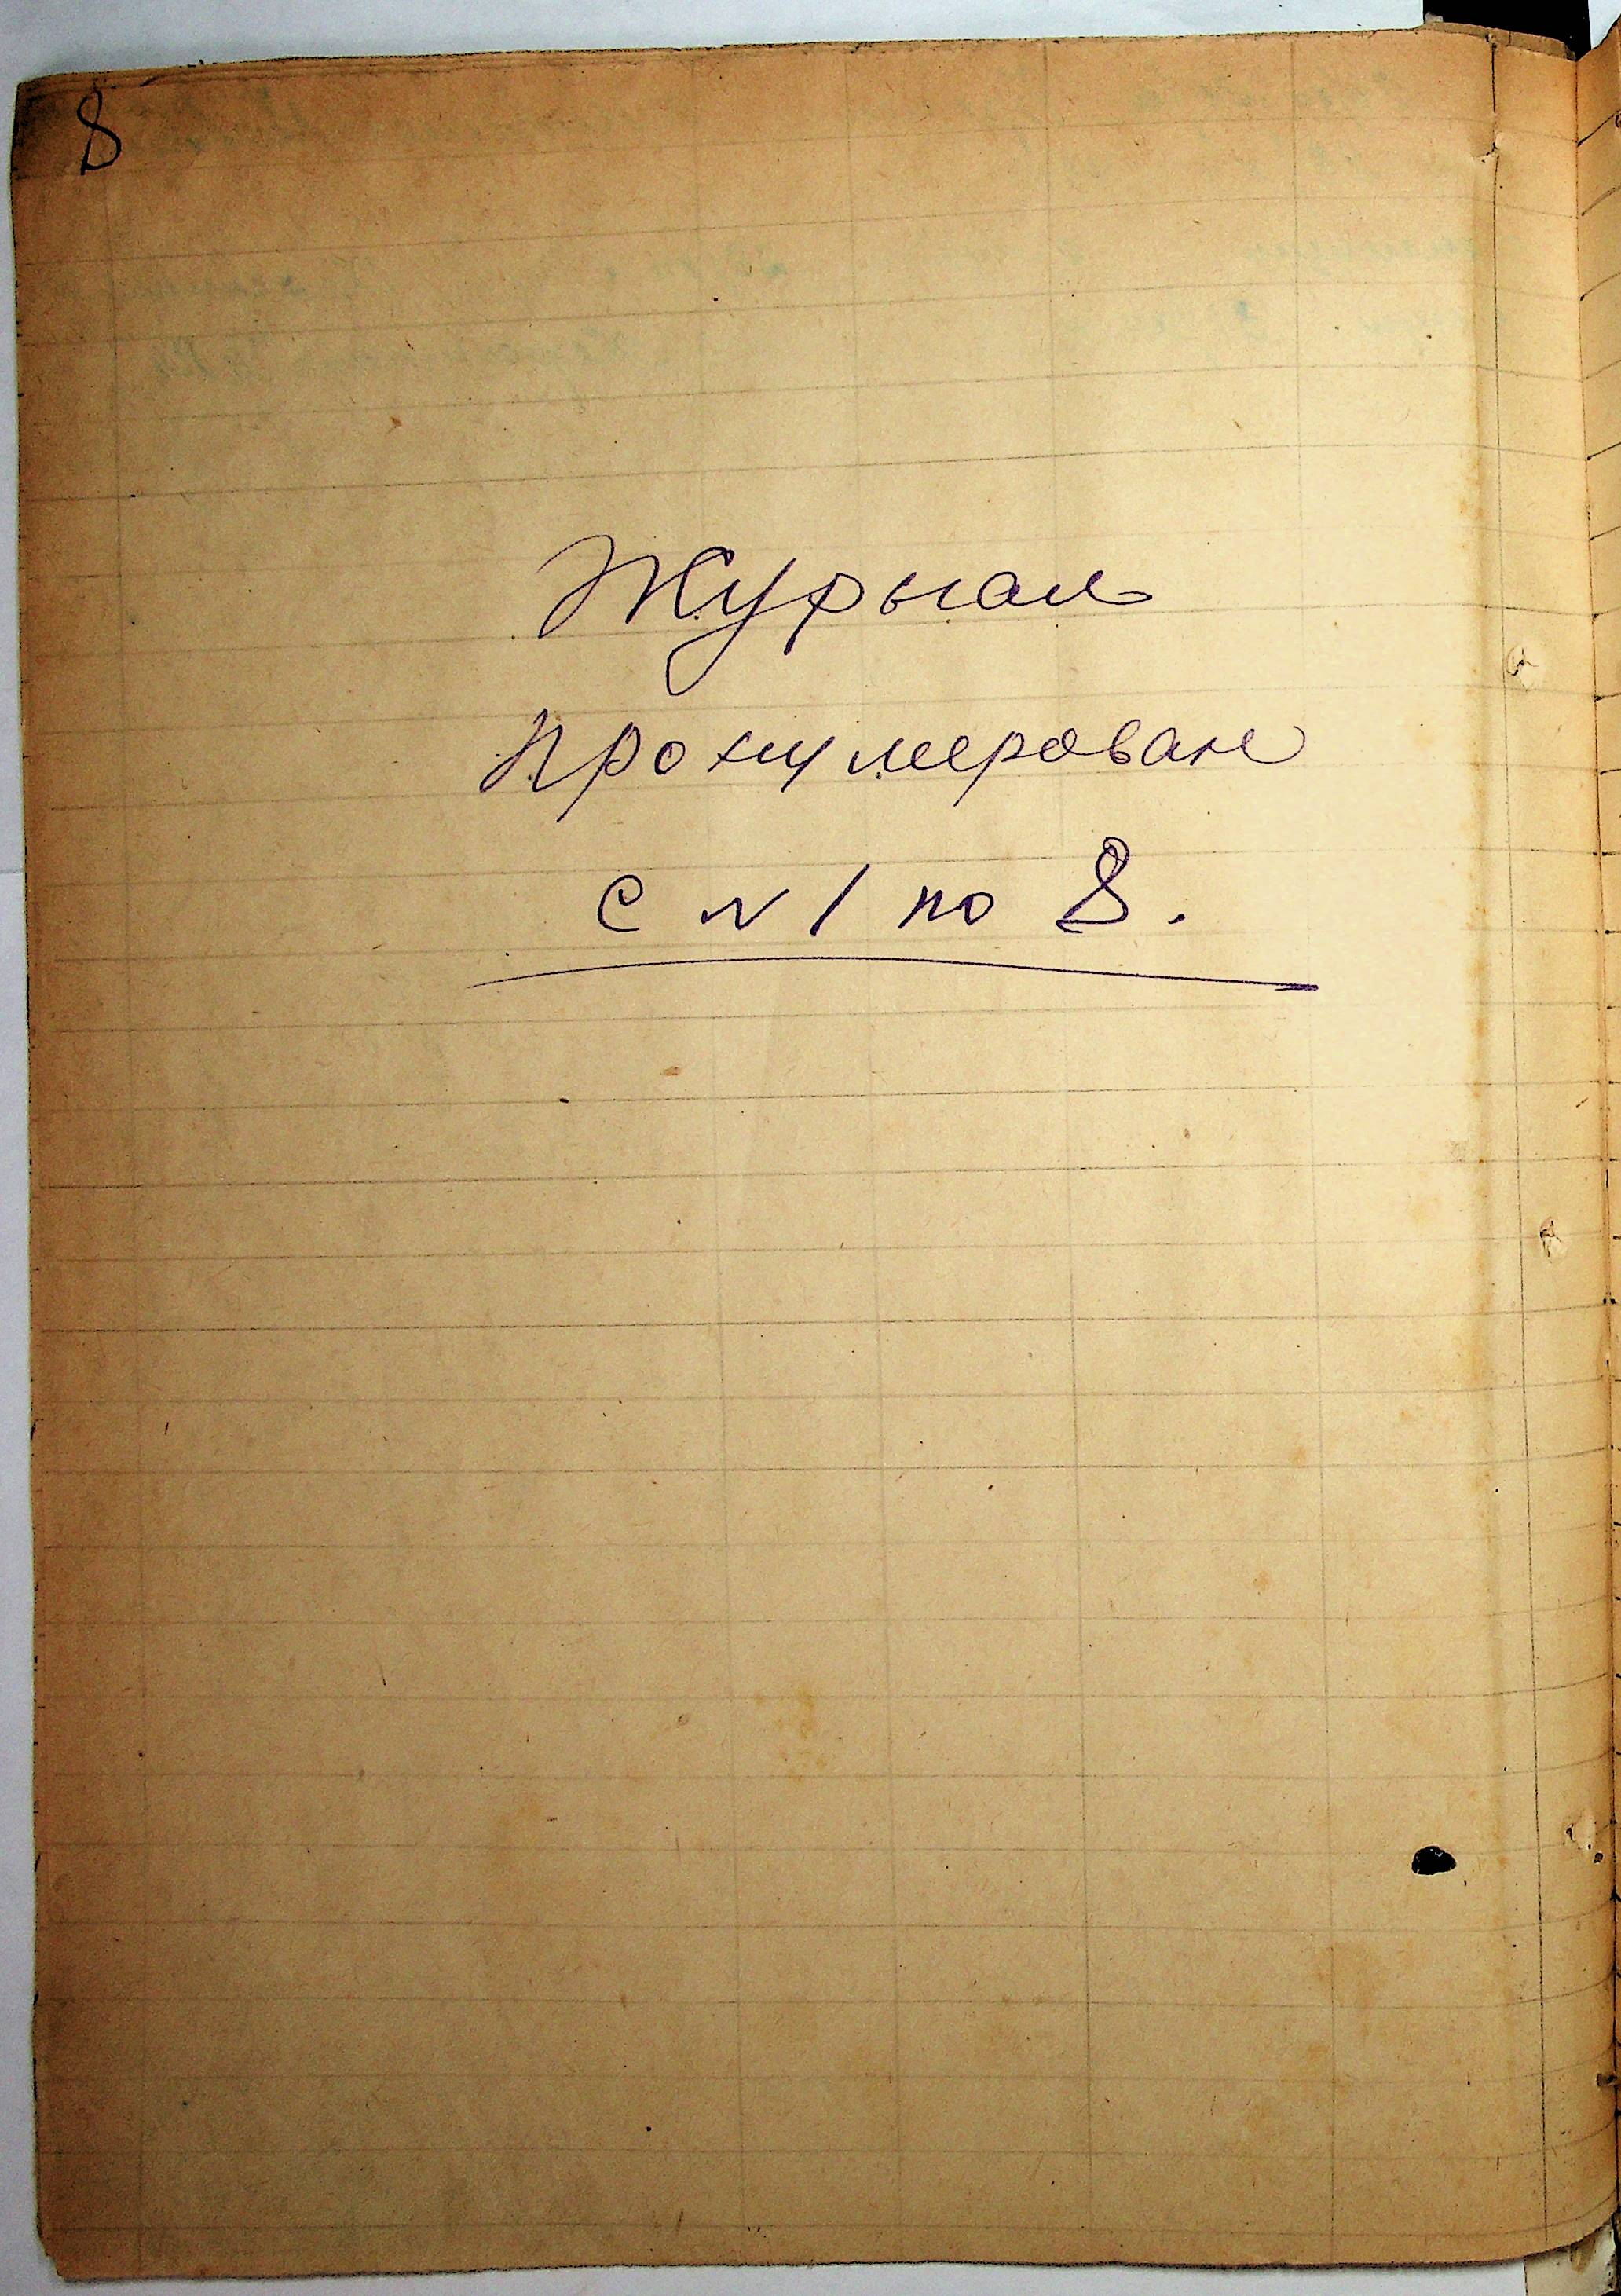 8
Журнал
пронумерован
с №1 по 8.